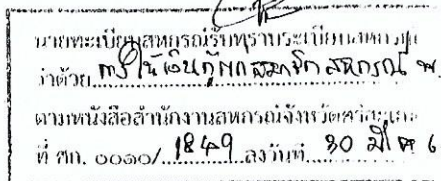 นายทะเบียนสหกรณ์รับทราบระเบียบสหกรณ์
ว่าด้วย การให้เงินกู้แก่สมาชิกสหกรณ์ พ.
ตามหนังสือสำนักงานสหกรณ์จังหวัดศรีสะเกษ
ที่ ศก. ๐๐๑๐/ 1849 ลงวันที่ 30 มี.ค 6